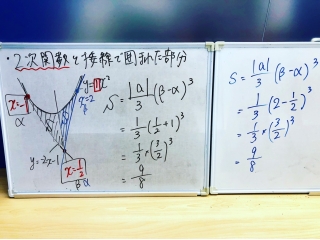 ・2次関数と接線で囲まれた部分
x=-1
α
y=x²
x=2
β
y=2x-1
x=1/2
β α
S=|a|/3(β-α)³
=1/3(1/2+1)³
=1/3×(3/2)³
=9/8
S=|a|/3(β-α)³
=1/3(2-1/2)³
=1/3×(3/2)³
=9/8